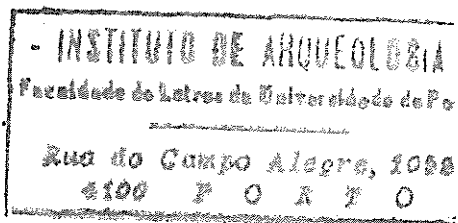 - INSTITUTO DE ARQUEOLOGIA
Faculdade de Letras da Universidade do Po
Rua do Campo Alegre, 1055
4100 P O R T O